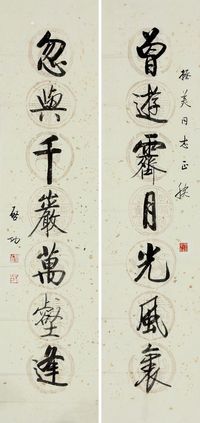 振美同志正腕
曾游霽月光風裏
忽與千巖萬壑逢
啟功